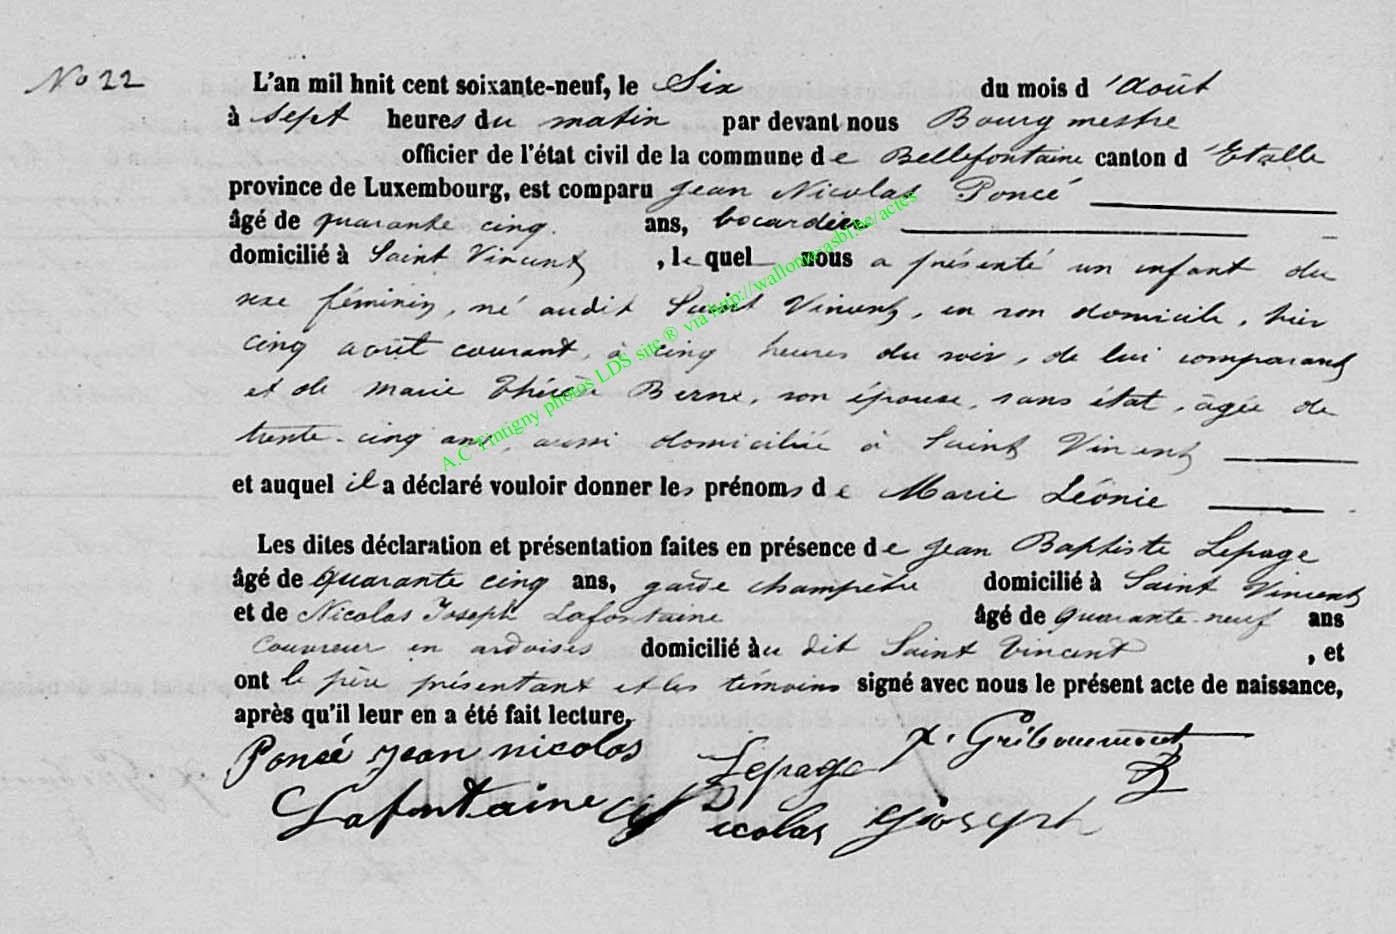 No 22
L'an mil hnit cent soixante-neuf, le Six du mois d 'Août
à sept heures du matin par devant nous Bourgmestre
officier de l'état civil de la commune de Bellefontaine canton d 'Etalle
province de Luxembourg, est comparu Jean Nicolas Poncé
âgé de quarante cinq. ans, bocardier
domicilié à Saint Vincent, le quel nous a présenté un enfant du
sexe féminin, né audit Saint Vincent, en son domicile, hier
cinq août courant, à cinq heures du soir, de lui comparant
et de Marie Thérèse Berne, son épouse, sans état, âgée de
trente-cinq ans, aussi domiciliée à Saint Vincent
et auquel il a déclaré vouloir donner les prénoms de Marie Léonie
Les dites déclaration et présentation faites en présence de Jean Baptiste Lepage
âgé de quarante cinq ans, garde champêtre domicilié à Saint Vincent
et de Nicolas Joseph Lafontaine âgé de quarante-neuf ans
couvreur en ardoises domicilié àu dit Saint Vincent, et
ont le père présentant et les témoins signé avec nous le présent acte de naissance,
après qu'il leur en a été fait lecture,
Poncé jean nicolas Lepage X. Gribaumont
Lafontaine Nicolas Gioseph
A.C Tintigny photos LDS site ® via http://wallonica.be/actes